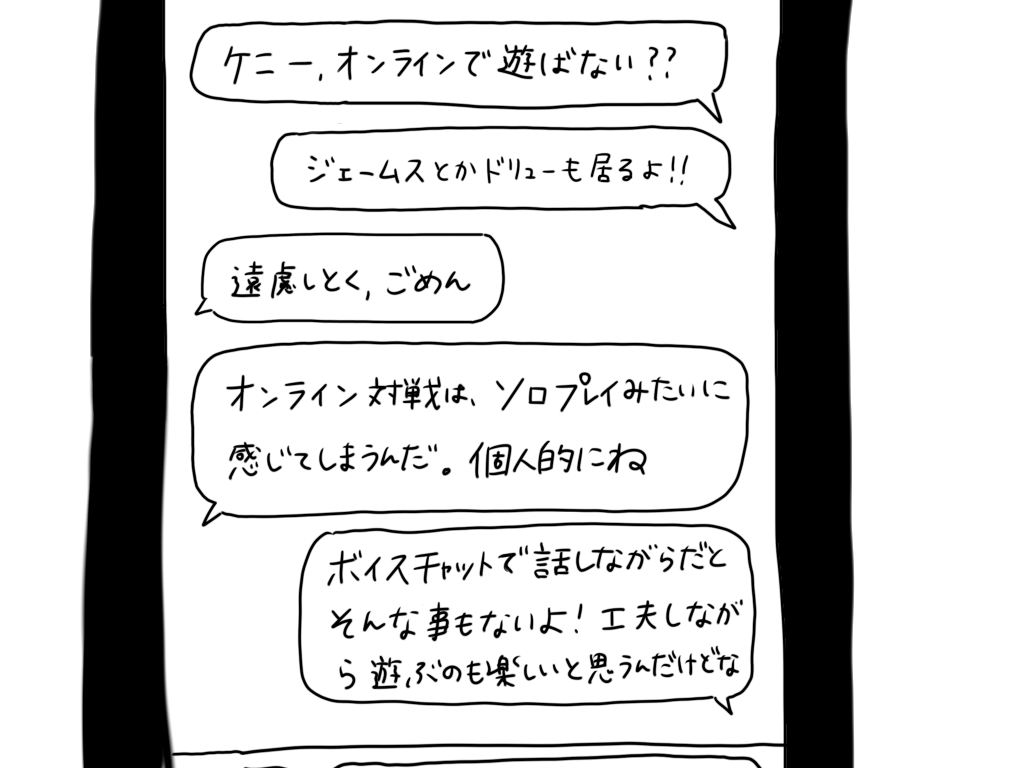 ケニー,オンラインで遊ばない??
ジェームスとかドリューも居るよ!!
遠慮しとく,ごめん
オンライン対戦は、ソロプレイみたいに
感じてしまうんだ。個人的にね
ボイスチャットで話しながらだと
そんな事もないよ!工夫しなが
ら遊ぶのも楽しいと思うんだけどな